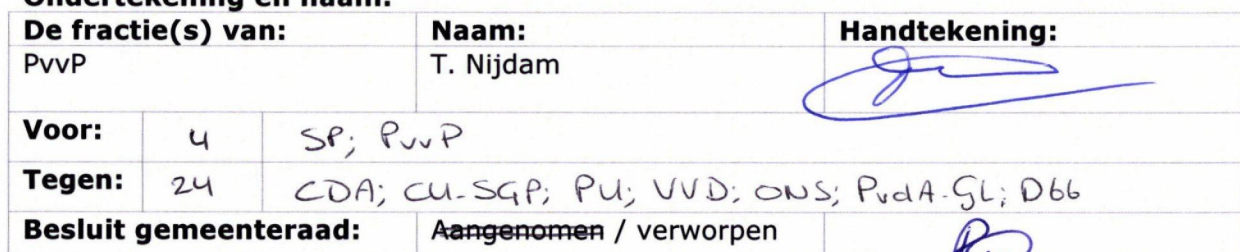 Ondertekening en naam:
De fractie(s) van: Naam: Handtekening:
PvvP T. Nijdam
Voor: 4 SP; PvvP
Tegen: 24 CDA; CU-SGP; PU; VVD; ONS; PvdA-GL; D66
Besluit gemeenteraad: Aangenomen / verworpen